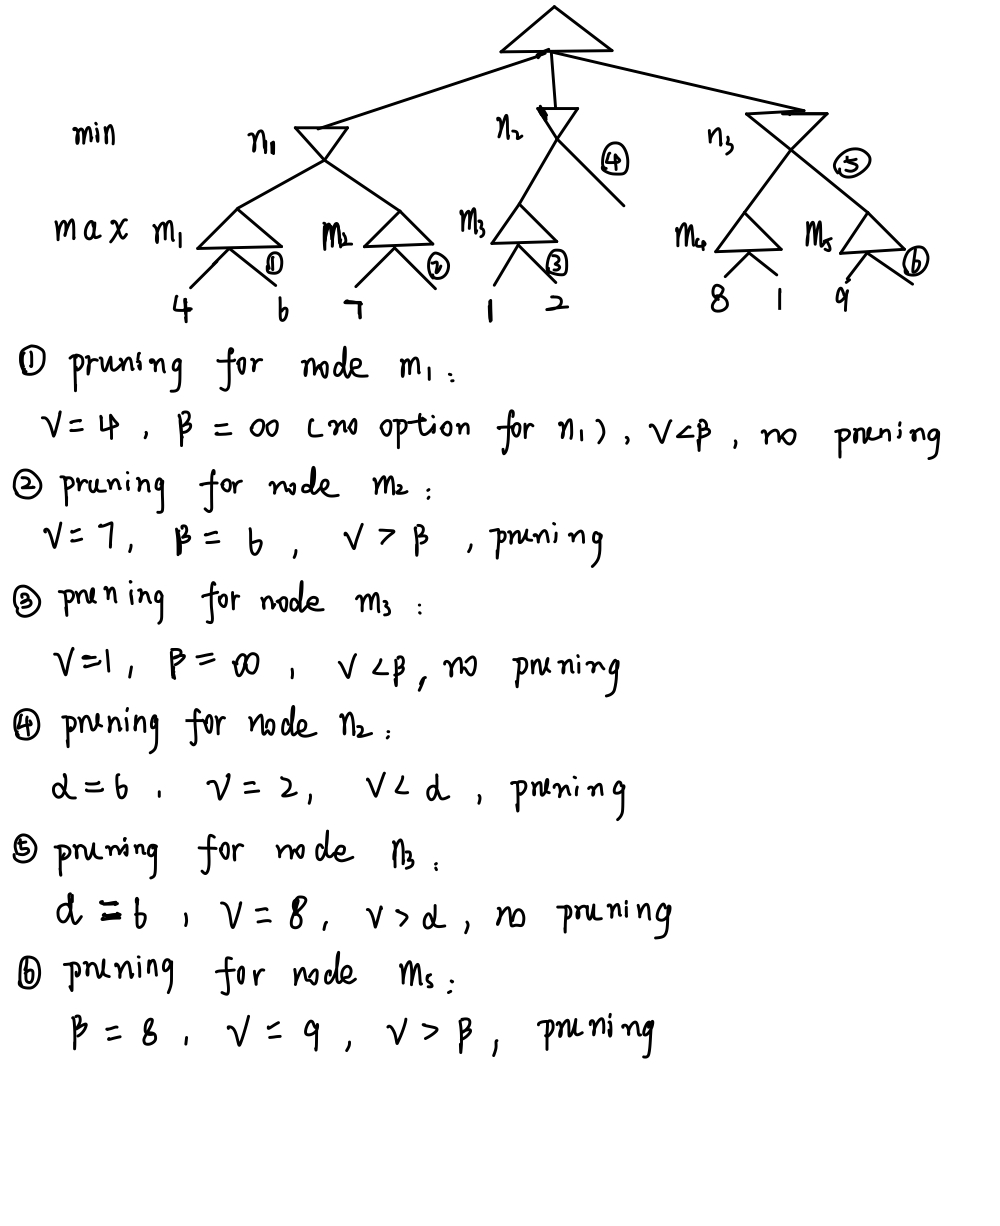 min n₁ n₂ ④ n₃ ⑤
max m₁ ① m₂ ② m₃ ③ m₄ m₅ ⑥
4 6 7 1 2 8 1 9
① pruning for node m₁ :
V = 4 , β = ∞ (no option for n₁) , V<β , no pruning
② pruning for node m₂ :
V = 7 , β = 6 , V > β , pruning
③ pruning for node m₃ :
V=1 , β = ∞ , V <β , no pruning
④ pruning for node n₂ :
α = 6 . V = 2 , V < α , pruning
⑤ pruning for node n₃ :
α = 6 , V = 8 , V > α , no pruning
⑥ pruning for node m₅ :
β = 8 , V = 9 , V > β , pruning